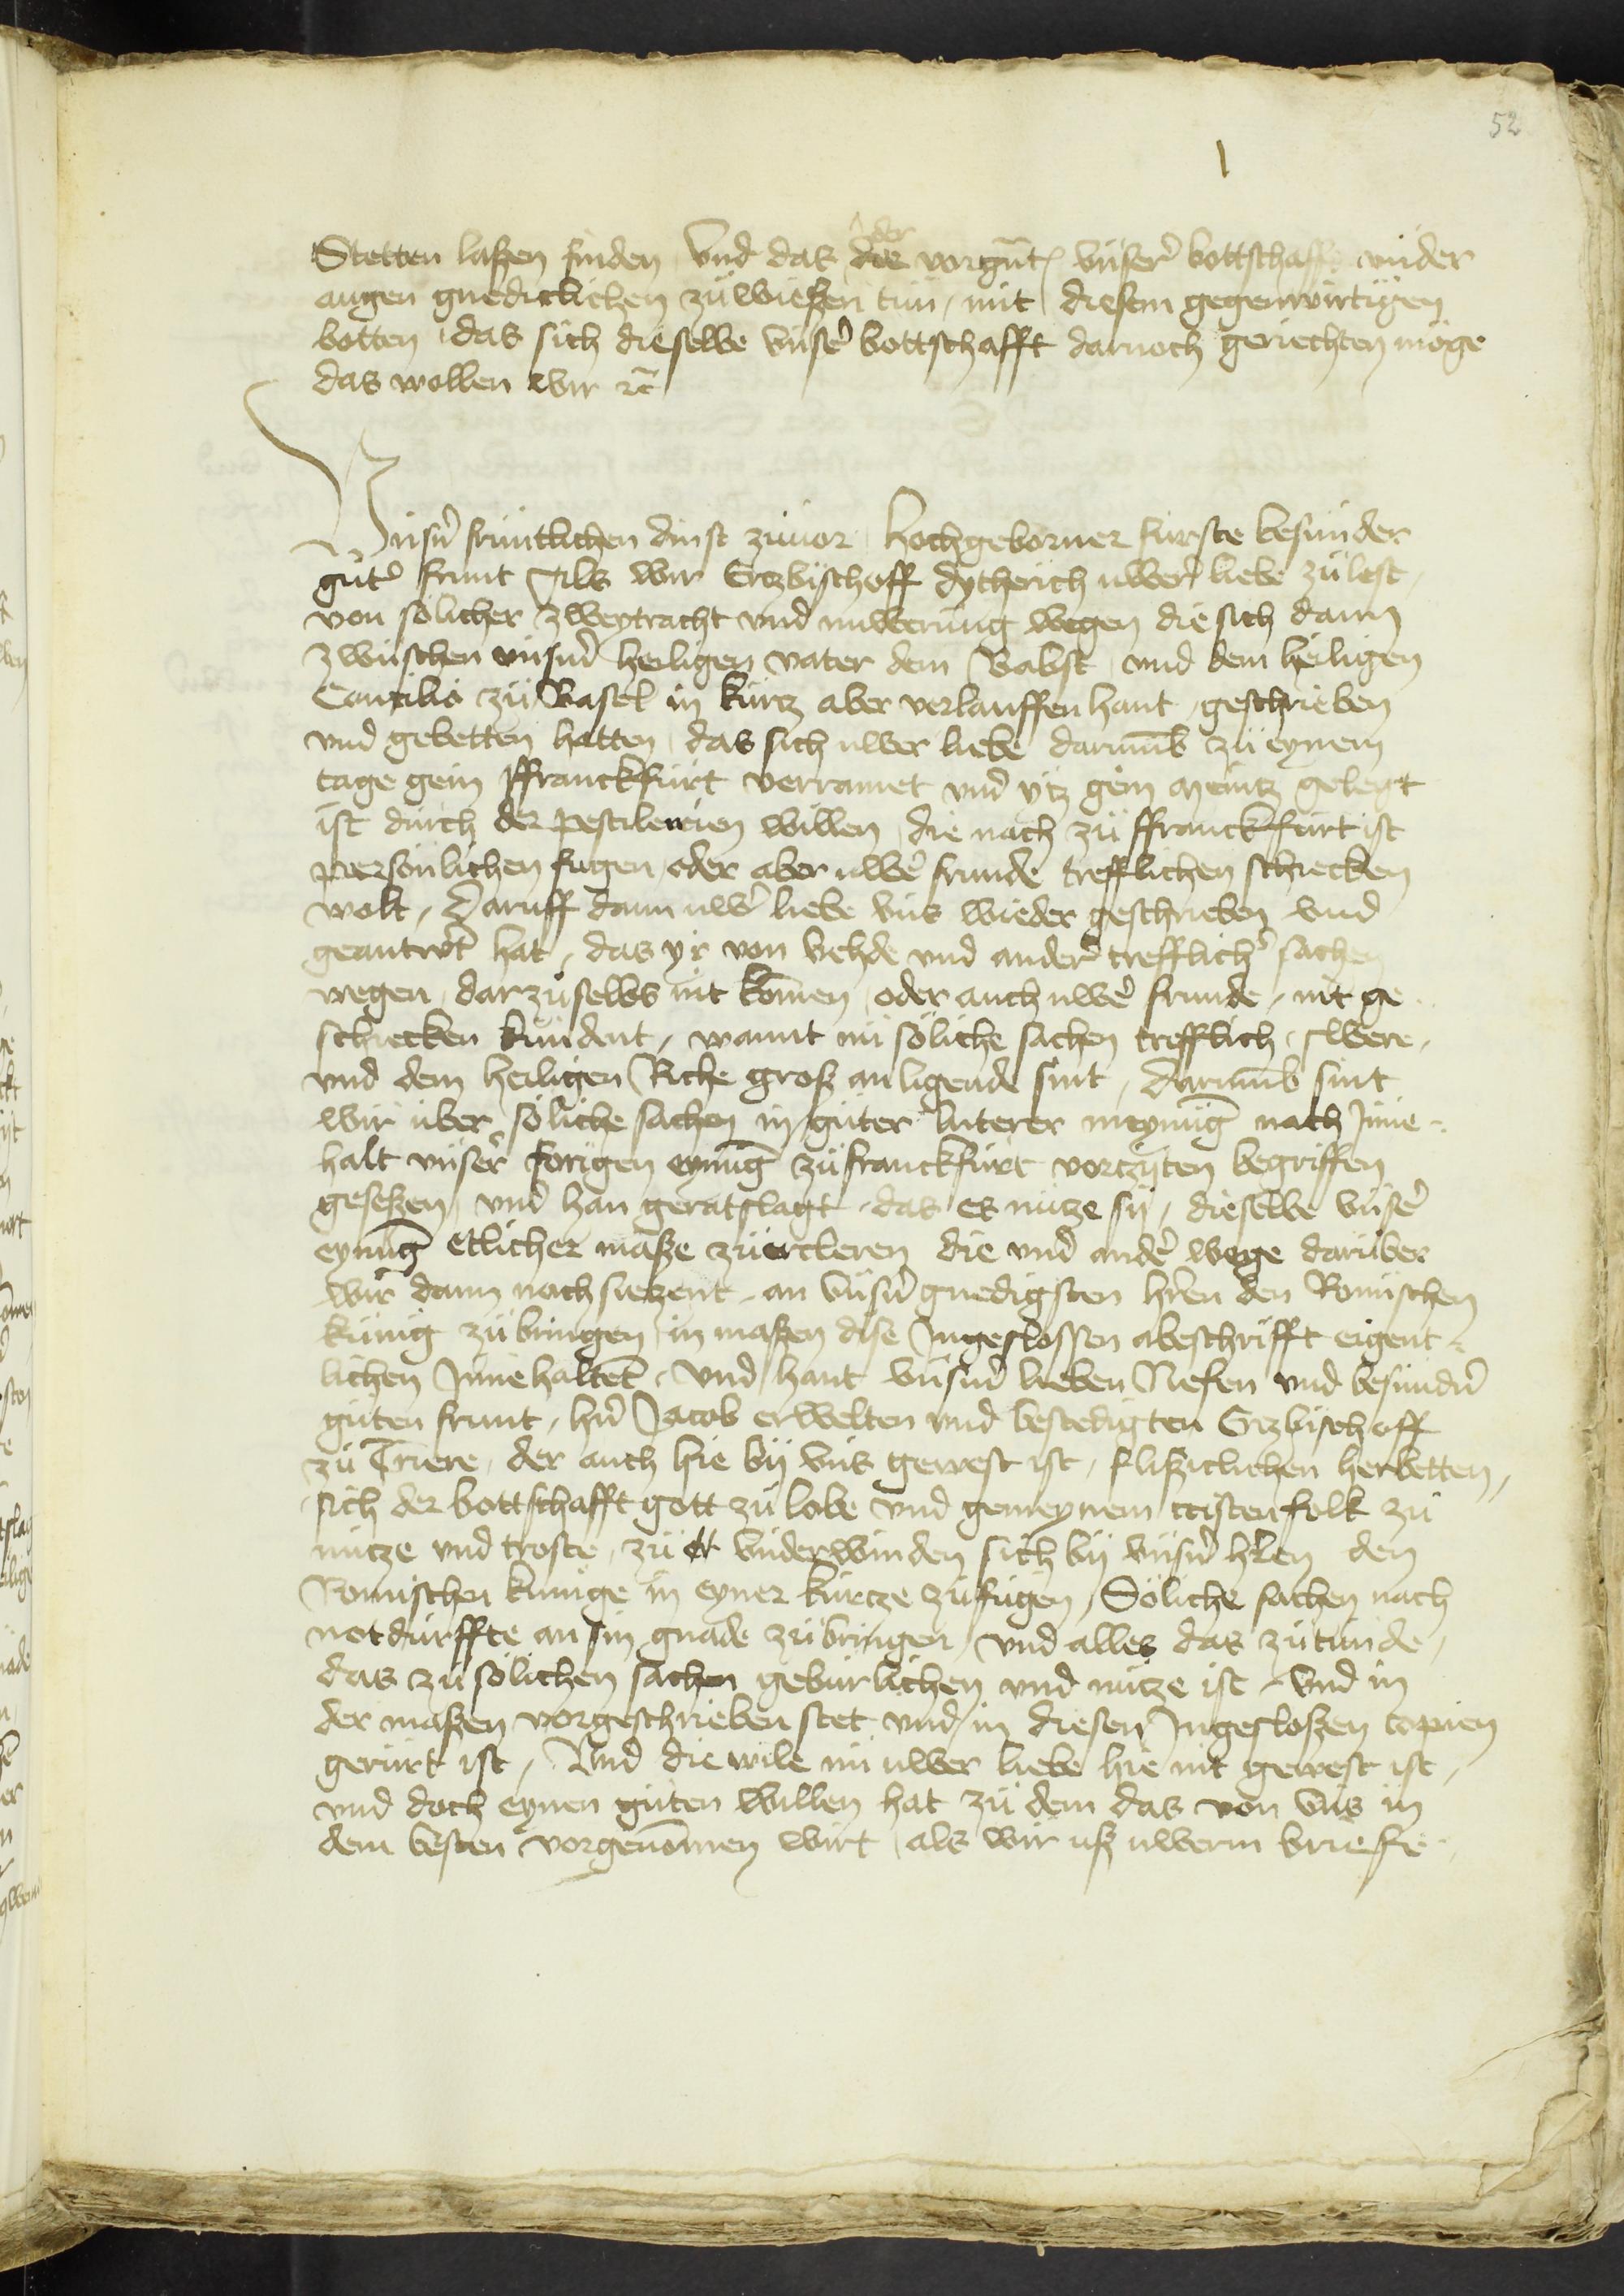 52
Stetten laßen finden Vnd das der vorgnt̃ vnser̉ bottschafft vnder
augen gnediclichen zu wießen tun / mit diesem gegenwirtigen
botten das sich dieselbe vnser̉ bottschafft darnoch geriechten möge
das wollen wir ꝛc̃
Vnsn̉ fruntlichen dinst zuuor Hochgeborner furste besunder
gut̉ frunt Als wir Erczbischoff dytherich uwer̉ liebe zu lest
von solicher zweytracht vnd nuwerung wegen die sich dann
zwuschen vnsm̉ heiligen vater dem Babst vnd dem heiligen
Concilio zu Basel in kurtz aber verlauffen hant geschrieben
vnd gebetten hatten das sich uwer liebe darum̃b zu eynem
tage gein ffranckfurt verramet vnd ytz gein Meintz gelegt
ist durch der pestilencien willen die nach zu ffranckfurt ist
personlichen fugen oder aber uwer̉ frunde trefflichen schiecken
wolt / Daruff dann uwer̉ liebe vns wieder geschrieben vnd
geantwt̉ hat / das yr von vehde vnd ander̉ trefflich̉ sachen
wegen darzu selbs nit kom̃en oder auch uwer̉ frunde / nit ge
schiecken kundent / wannt nu soliche sachen trefflich swere
vnd dem heiligen Riche groß anligende sint / darum̃b sint
wir uber soliche sachen in guter luterer meynu̅g nach Inne
halt vnser̉ forigen eynu̅g zu franckfurt vorczyten begriffen
geseßen vnd han geratslagt das es nutze sy / dieselbe vnser̉
eynu̅g etlicher maße zu ercleren die vnd ander̉ wege daruber
wir dann noch sietzent an vnsn̉ gnedigsten hr̉en den Romischen
kunig zu bringen in maßen dise Ingeslossen abeschrifft eigent
lichen Innehaltet̃ / Vnd hant vnsm̉ lieben Nefen vnd besundn̉
guten frunt / hn̉ Jacob erwelten vnd bestedigten Erzbischoff
zu Triere der auch hie by vns gewest ist / flißiclichen herbetten
sich der bottschafft gott zu lobe vnd gemeynem cristenfolk zu
nutze vnd troste zu vnderwinden sich by vnsn̉ hr̉en den
Romischen kunige in eyner kurtze zu fugen / Soliche sachen nach
notdurffte an sin gnade zu bringen vnd alles das zu tunde
das zu solichen sachen geburlichen vnd nutze ist / Vnd in
der maßen vorgeschrieben stet vnd in diesen Ingesloßen copien
gerurt ist / Vnd die wile nu uwer liebe hie nit gewest ist
vnd doch eynen guten willen hat zu dem das von vns in
dem besten vorgenom̃en wirt als wir uß uwerm briefe